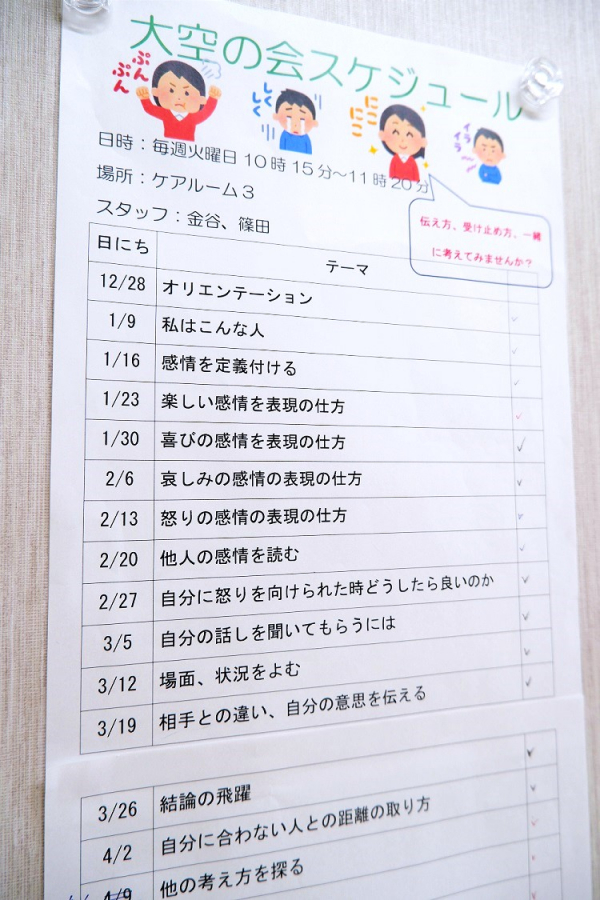 大空の会スケジュール
ぷん
ぷん
しくしく
にこ
にこ
イライラ
日時：毎週火曜日 10時15分～11時20分
場所：ケアルーム3
スタッフ：金谷、篠田
伝え方、受け止め方、一緒
に考えてみませんか？
日にち テーマ
12/28 オリエンテーション
1/9 私はこんな人
1/16 感情を定義付ける
1/23 楽しい感情を表現の仕方
1/30 喜びの感情を表現の仕方
2/6 哀しみの感情の表現の仕方
2/13 怒りの感情の表現の仕方
2/20 他人の感情を読む
2/27 自分に怒りを向けられた時どうしたら良いのか
3/5 自分の話しを聞いてもらうには
3/12 場面、状況をよむ
3/19 相手との違い、自分の意思を伝える
3/26 結論の飛躍
4/2 自分に合わない人との距離の取り方
4/9 他の考え方を探る